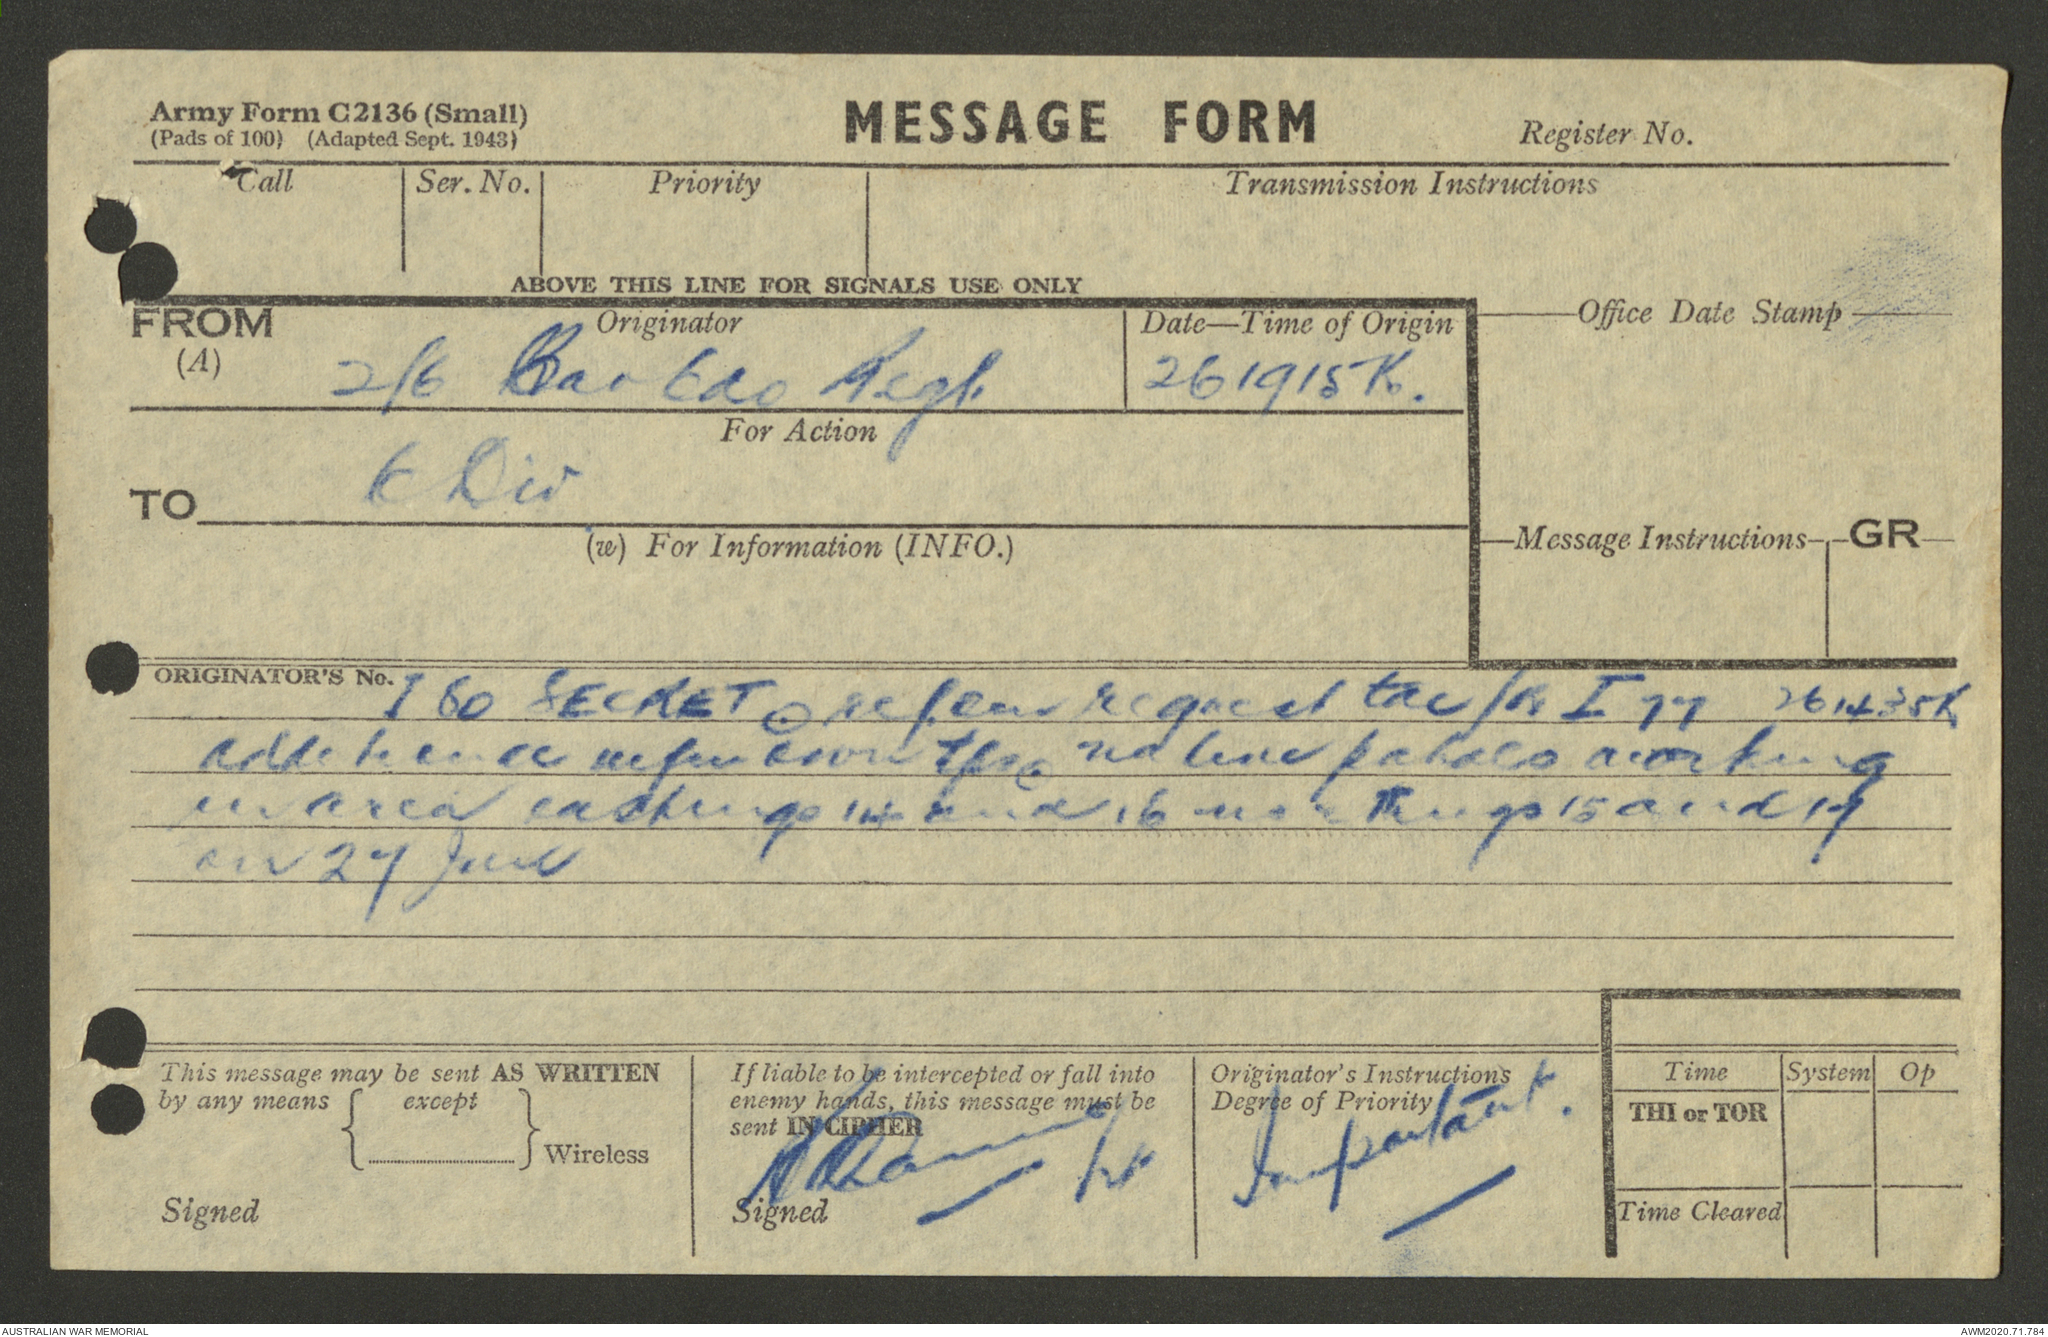 Army Form C2136 (Small)
(Pads of 100) (Adapted Sept. 1943)
MESSAGE FORM
Register No.
Call Ser. No. Priority Transmission Instructions
ABOVE THIS LINE FOR SIGNALS USE ONLY
FROM Originator Date—Time of Origin Office Date Stamp
(A) 2/6 Cav Cdo Regt 261915K.
For Action
6 Div
TO
(w) For Information (INFO.)
Message Instructions GR
ORIGINATOR'S No. I 80 SECRET ref our request tac/R I 77 261435K
own tps no own patrols working
in area eastings 14 and 16 northings 15 and 17
on 27 June
This message may be sent AS WRITTEN
by any means except
Wireless
Signed
If liable to be intercepted or fall into
enemy hands, this message must be
sent IN CIPHER
Lt
Signed
Originator's Instructions
Degree of Priority
Important.
Time System Op
THI or TOR
Time Cleared
AUSTRALIAN WAR MEMORIAL
AWM2020.71.784